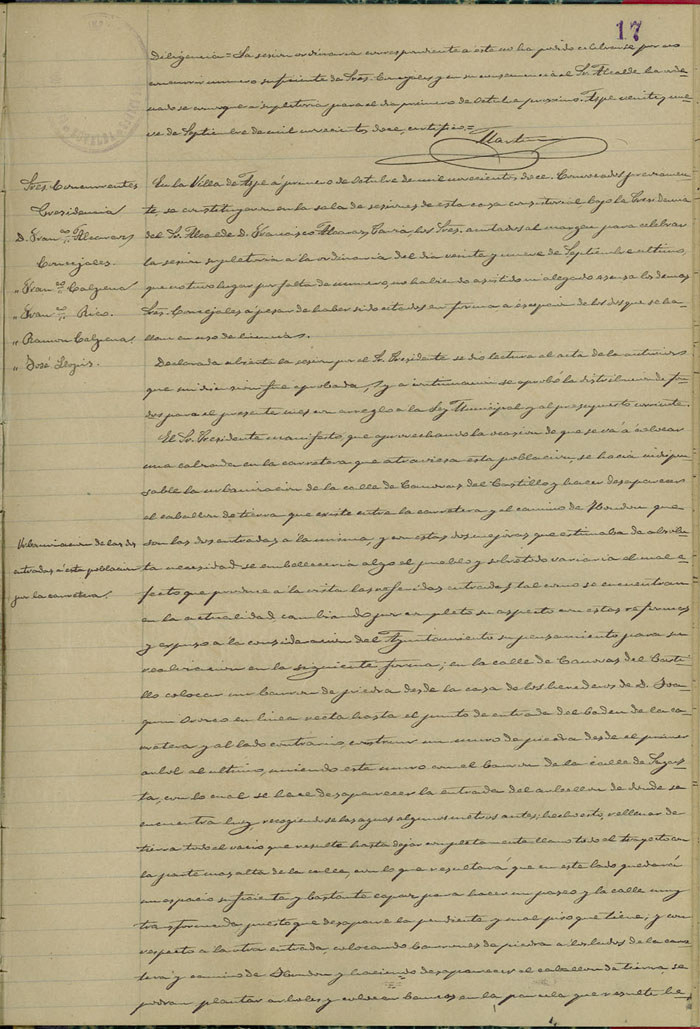 17
Diligencia = La sesion ordinaria correspondiente a este no ha podido celebrarse por no
concurrir numero suficiente de Sres. Concejales y en su consecuencia el Sr. Alcalde ha orde-
nado se convoque a supletoria para el dia primero de Octubre proximo. Aspe veinte y nue-
ve de Septiembre de mil novecientos doce, certifico =
Sres. Concurrentes
Presidencia
D. Franco. Alcaraz
Concejales
" Franco. Calpena
" Franco. Rico.
" Ramon Calpena
" José Llopis.
En la Villa de Aspe á primero de Octubre de mil novecientos doce. Convocados previamen-
te, se constituyeron en la sala de sesiones de esta casa consistorial bajo la Presidencia
del Sr. Alcalde D. Francisco Alcaraz los Sres. anotados al margen para celebrar
la sesion supletoria a la ordinaria del dia veinte y nueve de Septiembre ultimo,
que no tuvo lugar por falta de numero, no habiendo asistido ni alegado escusa los demas
Sres. Concejales á pesar de haber sido citados en forma a escepcion de los dos que se ha-
llan en uso de licencia.
Declarada abierta la sesion por el Sr. Presidente se dio lectura al acta de la anterior
que sin discusion fue aprobada, y a continuacion se aprobó la distribucion de fon-
dos para el presente mes con arreglo a la Ley Municipal y al presupuesto corriente.
Urbanizacion de las dos
entradas á esta poblacion
por la carretera.
El Sr. Presidente manifestó que aprovechando la ocasion de que se vá á colocar
una calzada en la carretera que atraviesa esta poblacion, se hacia indispen-
sable la urbanizacion de la calle de Canovas del Castillo y hacer desaparecer
el caballon de tierra que existe entre la carretera y el camino de Hondon que
son las dos entradas a la misma, y con estas dos mejoras que estimaba de absolu-
ta necesidad se embelleceria algo el pueblo y sobre todo variaria el mal e-
fecto que produce a la vista las referidas entradas tal como se encuentran
en la actualidad, cambiando por completo su aspecto con estas reformas
y expuso a la consideracion del Ayuntamiento su pensamiento para su
realizacion en la siguiente forma; en la calle de Canovas del Casti-
llo colocar un banzon de piedra desde la casa de los herederos de D. Joa-
quin en linea recta hasta el punto de entrada del baden de la ca-
rretera y al lado contrario, construir un muro de piedra desde el primer
arbol al ultimo, uniendo este muro con el de la calle de Sagas-
ta, con lo cual se hace desaparecer la entrada del arbollon de donde se
encuentra hoy, recogiendose las aguas algunos metros antes; hecho esto, rellenar de
tierra todo el vacio que resulte hasta dejar completamente llano todo el trayecto en
la parte mas alta de la calle, con lo que resultará que en este lado quedará
un espacio suficiente y bastante capaz para hacer un paseo y la calle muy
transformada, puesto que desaparece la pendiente y mal piso que tiene; y con
respecto a la otra entrada, colocando de piedra a los lados de la carre-
tera y camino de Hondon y haciendo desaparecer el caballon de tierra, se
podran plantar arboles y colocar bancos en la parcela que resulte